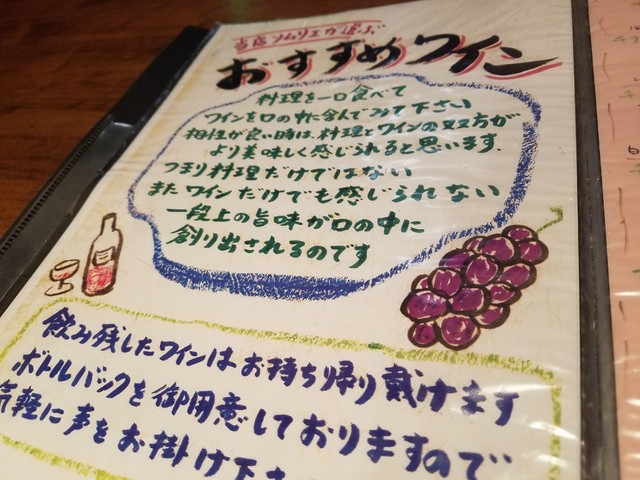 当店ソムリエが選ぶ
おすすめワイン
料理を一口食べて
ワインを口の中に含んでみて下さい
相性が良い時は、料理とワインの双方が
より美味しく感じられると思います.
つまり料理だけではない
またワインだけでも感じられない
一段上の旨味が口の中に
創り出されるのです
飲み残したワインはお持ち帰り戴けます
ボトルバックを御用意しておりますので
気軽に声をお掛け下さ